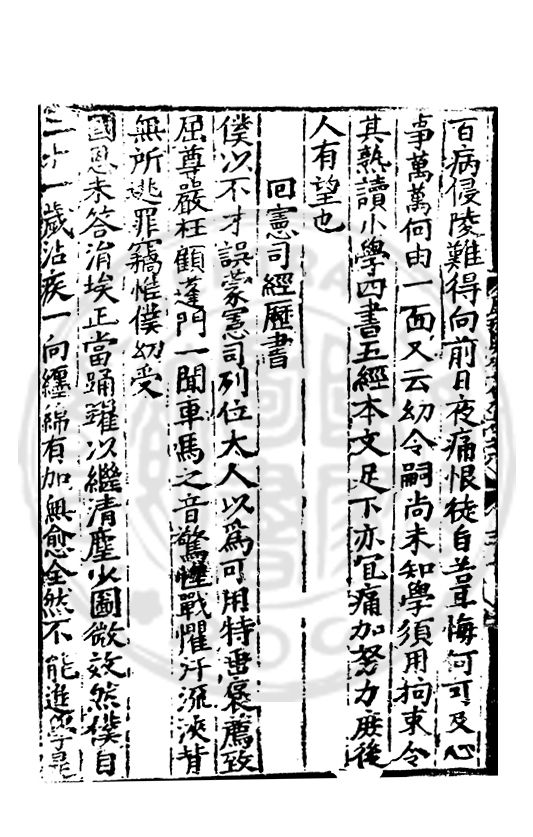 百病侵陵難得向前日夜痛恨徒自苦耳悔何可及心
事萬萬何由一面又云幼令嗣尚未知學須用拘束令
其熟讀小學四書五經本文足下亦宜痛加努力庶後
人有望也
回憲司經歷書
僕以不才誤蒙憲司列位大人以為可用特垂褒薦致
屈尊嚴枉顧蓬門一聞車馬之音驚惶戰懼汗流浹背
無所逃罪竊惟僕幼受
國恩未答涓埃正當踊躍以繼清塵少圖微效然僕自
二十一歲沾疾一向纏綿有加無愈全然不能進學是